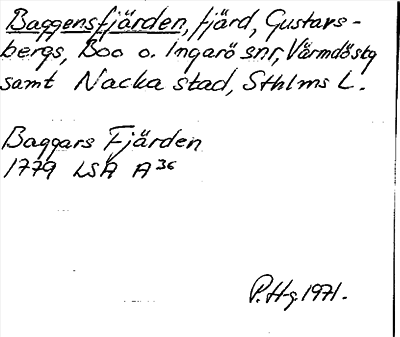 Baggensfjärden, fjärd, Gustavs-
bergs, Boo o. Ingarö snr, Värmdö skg
samt Nacka stad, Sthlms L.
Baggars Fjärden
1779 LSA A36
P. H-g. 1971.